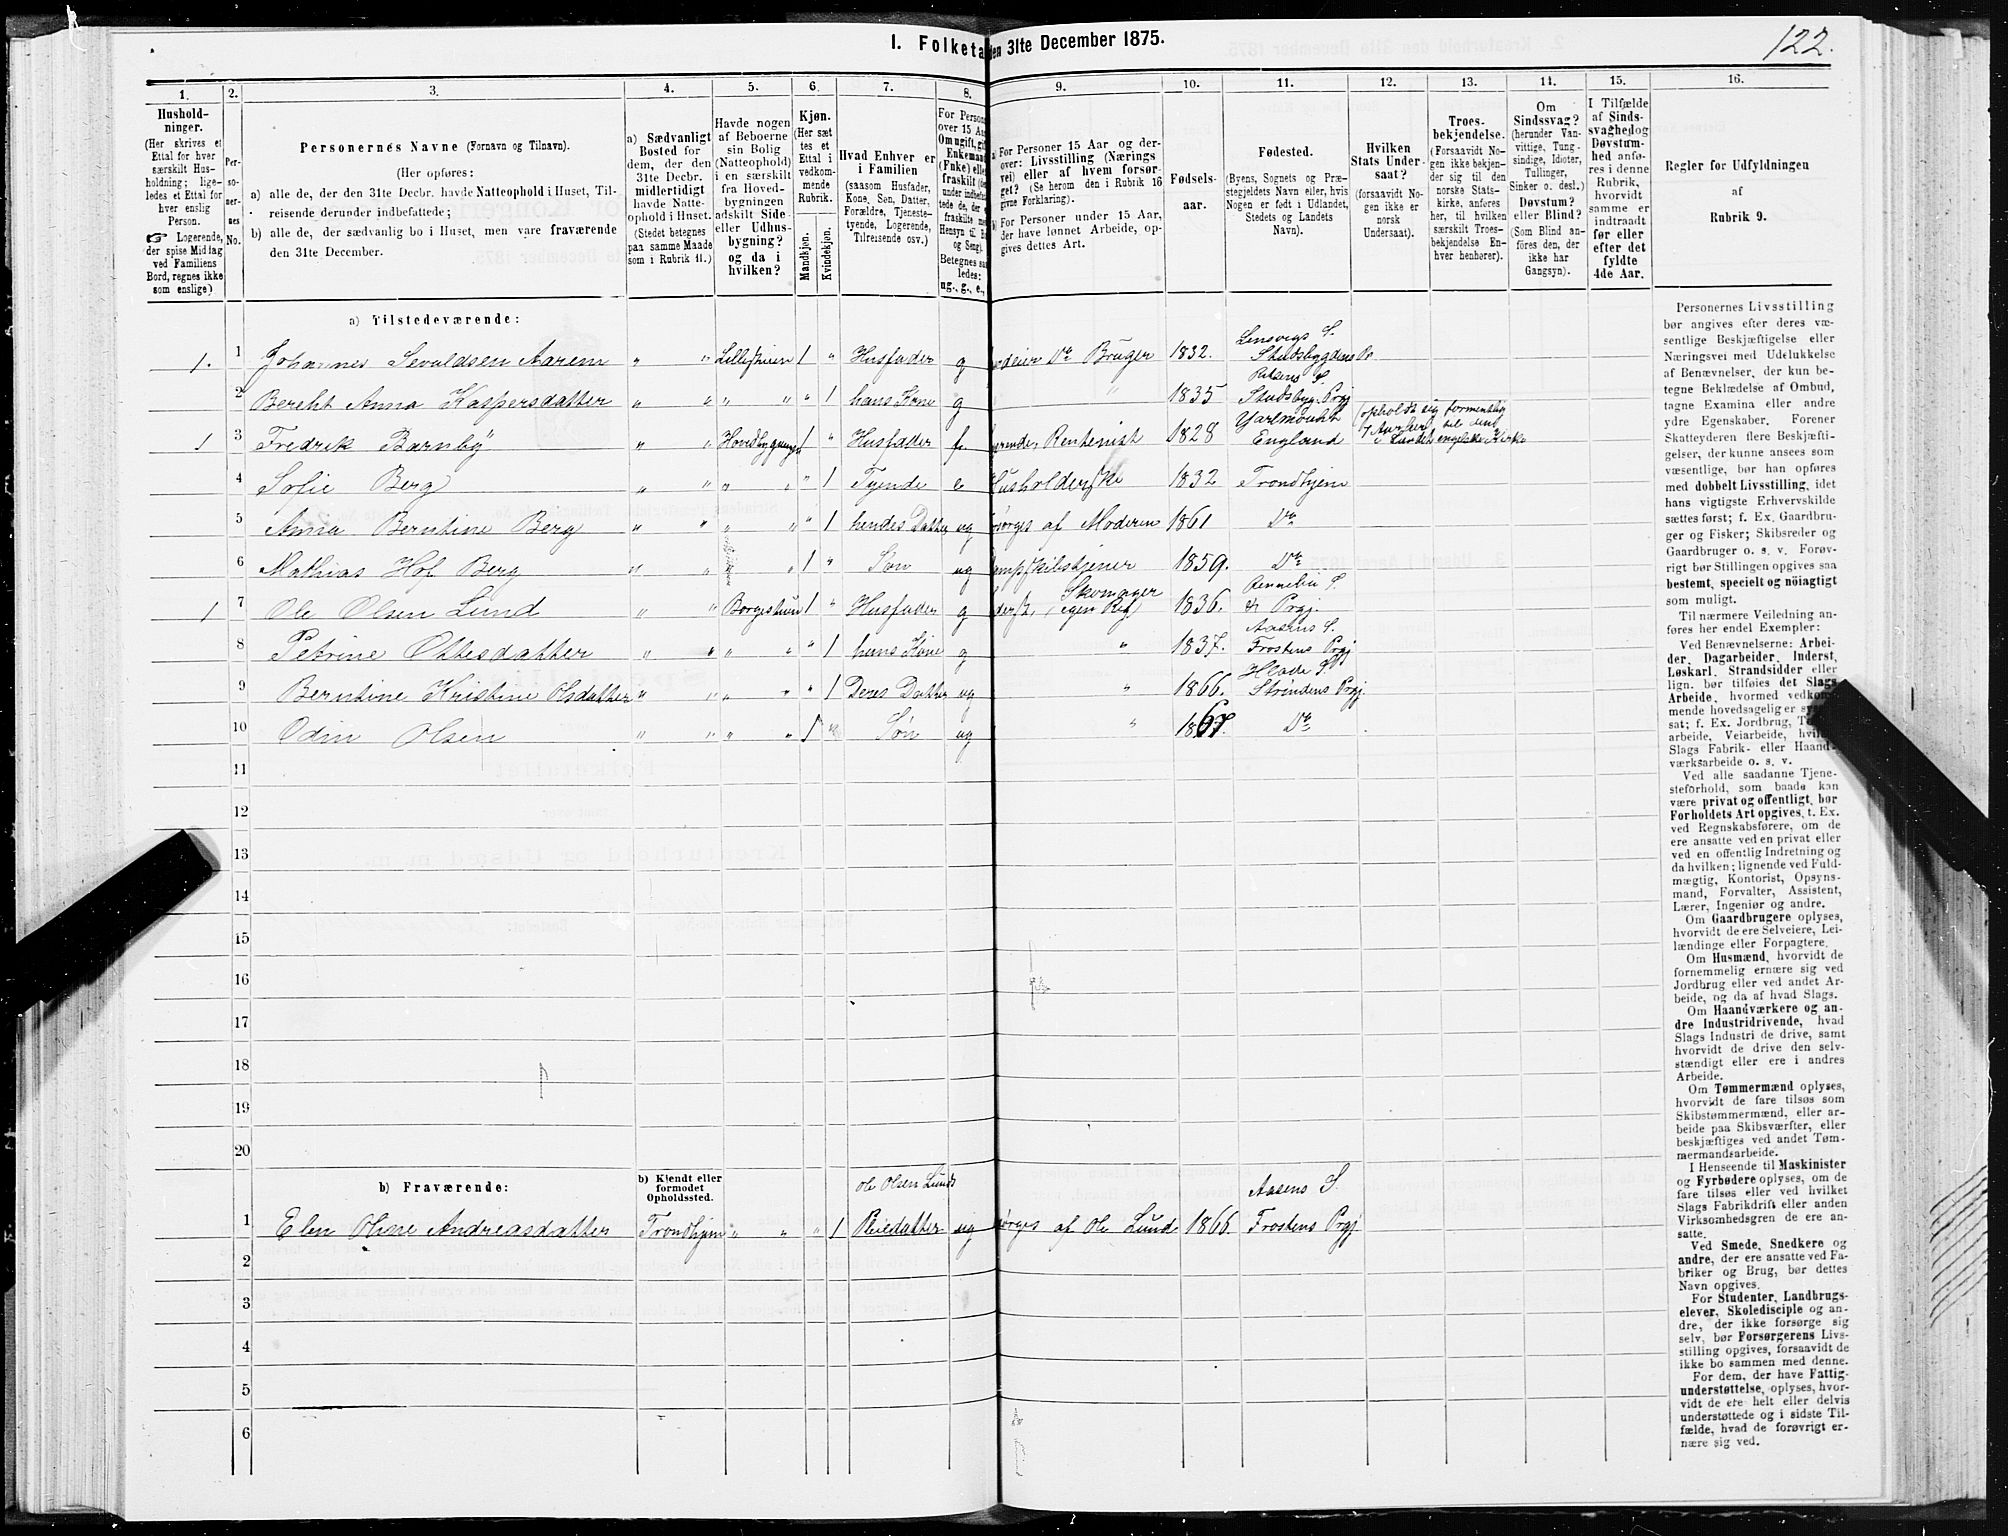 I. Folketa
den 31te December 1875.
122.
1.
2.
3.
4.
5.
6.
7.
8.
9.
10.
11.
12.
13.
14.
15.
16.
Hushold-
ninger.
(Her skrives et
Ettal for hver
særskilt Hus-
holdning; lige-
ledes et Ettal for
hver enslig
Person.
☞ Logerende,
der spise Middag
ved Familiens
Bord, regnes ikke
som enslige)
Per-
so-
ner-
nes
No.
Personernes Navne (Fornavn og Tilnavn).
(Her opføres:
a) alle de, der den 31te Decbr. havde Natteophold i Huset, Til-
reisende derunder indbefattede;
b) alle de, der sædvanlig bo i Huset, men vare fraværende
den 31te December.
a) Sædvanligt
Bosted for
dem, der den
31te Decbr.
midlertidigt
havde Natte-
ophold i Huset.
(Stedet betegnes
paa samme Maade
som i Rubrik 11.)
Havde nogen
af Beboerne
sin Bolig
(Natteophold)
i en særskilt
fra Hoved-
bygningen
adskilt Side-
eller Udhus-
bygning?
og da i
hvilken?
Kjøn.
(Her sæt-
tes et
Ettal i
vedkom-
mende
Rubrik.
Mandkjøn.
Kvindekjøn.
Hvad Enhver er
i Familien
(saasom Husfader,
Kone, Søn, Datter,
Forældre, Tjeneste-
tyende, Logerende,
Tilreisende osv.)
For Person
over 15 Aar
Om ugift, gift
Enkemand
(Enke) eller
fraskilt
under indbefat-
tede de, der er
fraskilte med
Hensyn til Bo
og Seng).
Betegnes saa-
ledes:
ug., g., e.,
a) For Personer 15 Aar og der-
over: Livsstilling (Nærings
vei) eller af hvem forsør-
get? (Se herom den i Rubrik 16
givne Forklaring).
b) For Personer under 15 Aar,
der have lønnet Arbeide, op-
gives dettes Art.
Fødsels-
aar.
Fødested.
(Byens, Sognets og Præ-
stegjeldets Navn eller, hvis
Nogen er født i Udlandet,
Stedets og Landets
Navn).
Hvilken
Stats Under-
saat?
(forsaavidt No-
gen ikke er
norsk
Undersaat).
Troes-
bekjendelse.
(Forsaavidt No-
gen ikke bekjen-
der sig til den
norske Stats-
kirke, anføres
her, til hvilken
særskilt Troes-
bekjendelse En-
hver henhører).
Om
Sindssvag?
(herunder Van-
vittige, Tung-
sindige, Idioter,
Tullinger,
Sinker o. desl.)
Døvstum?
eller Blind?
(Som Blind an-
føres den, der
ikke har
Gangsyn).
I Tilfælde
af Sinds-
svaghed og
Døvstum-
hed anfø-
res i denne
Rubrik,
hvorvidt
samme er
indtraadt
før eller
efter det
fyldte
4de Aar.
Regler for Udfyldningen
af
Rubrik 9.
a) Tilstedeværende:
1. 1 Johannes Sevaldsen Aarem " " 1 " Husfader g odeier Do Bruger 1832. Lensvegs S. Stadsbygdens Pr
2 Bereht Anna Kaspersdatter " " " " " 1 hans Kone g " 1835 Rissens S. Stadsbyg. Prgj
1 3 Fredrik Barnby " " Hovedbygningen 1 " Husfader f. Rentenist 1828 Yarlmouht England (opholdt sig 7 Aar her i Landet formentlig til den engelske Kirke
4 Sofie Berg " " " " " 1 Tyende e Husholderske 1832 Trondhjem
5 Anna Berntine Berg " " " " " 1 hendes Datter ug sørges af Moderen 1861 Do
6 Mathias Hof Berg " " " " 1 " Søn ug ampskibstjener 1859. Do
1 7 Ole Olsen Lund " " Borgestuen 1 " Husfader g Skomager egen Reg 1836. Rennebu S. & Prgj.
8 Petrine Ottesdatter " " " " " 1 hans Kone g " 1837. Aasens S. Frostens Prgj
9 Berntine Kristine Olsdatter " " " " " 1 Deres Datter ug " 1866. Hlade S. Strindens Prgj.
10 Odin Olsen " " " " 1 " Søn ug " 1867. Do
11
12
13
14
15
16
17
18
19
20
b) Fraværende:
b) Kjendt eller
formodet
Opholdssted.
Ole Olsen Lunds
1 Elen Oline Andreasdatter Trondhjem " " " 1 Pleiedatter ug sørges af Ole Lund 1866. Aasens S. Frostens Prgj
2
3
4
5
6
Personernes Livsstilling
bør angives efter deres væ-
sentlige Beskjæftigelse eller
Næringsvei med Udelukkelse
af Benævnelser, der kun be-
tegne Beklædelse af Ombud,
tagne Examina eller andre
ydre Egenskaber. Forener
Skatteyderen flere Beskjæfti-
gelser, der kunne ansees som
væsentlige, bør han opføres
med dobbelt Livsstilling, idet
hans vigtigste Erhvervskilde
sættes først; f. Ex. Gaardbru-
ger og Fisker; Skibsreder og
Gaardbruger o. s. v. Forøv-
rigt bør Stillingen opgives saa
bestemt, specielt og nöiagtigt
som muligt.
Til nærmere Veiledning an-
føres her endel Exempler:
Ved Benævnelserne: Arbei-
der, Dagarbeider, Inderst,
Løskarl, Strandsidder eller
lign. bør tilføies det Slags
Arbeide, hvormed vedkom-
mende hovedsagelig er syssel-
sat; f. Ex. Jordbrug,
arbeide, Veiarbeide, hvilket
Slags Fabrik- eller Haand-
værksarbeide o. s. v.
Ved alle saadanne Tjene-
steforhold, som baade kan
være privat og offentligt, bør
Forholdets Art opgives, t. Ex.
ved Regnskabsførere, om de
ere ansatte ved en privat eller
ved en offentlig Indretning og
da hvilken; lignende ved Fuld-
mægtig, Kontorist, Opsyns-
mand, Forvalter, Assistent,
Lærer, Ingeniør og andre.
Om Gaardbrugere oplyses,
hvorvidt de ere Selveiere, Lei-
lændinge eller Forpagtere.
Om Husmænd, hvorvidt de
fornemmelig ernære sig ved
Jordbrug eller ved andet Ar-
beide, og da af hvad Slags.
Om Haandværkere og an-
dre Industridrivende, hvad
Slags Industri de drive, samt
hvorvidt de drive den selv-
stændigt eller ere i andres
Arbeide.
Om Tømmermænd oplyses,
hvorvidt de fare tilsøs som
Skibstømmermænd, eller ar-
beide paa Skibsværfter, eller
beskjæftiges ved andet Tøm-
mermandsarbeide.
I Henseende til Maskinister
og Fyrbødere oplyses, om de
fare tilsøs eller ved hvilket
Slags Fabrikdrift eller anden
Virksomhedsgren de ere an-
satte.
Ved Smede, Snedkere og
andre, der ere ansatte ved Fa-
briker og Brug, bør dettes
Navn opgives.
For Studenter, Landbrugs-
elever, Skoledisciple og an-
dre, der ikke forsørge sig
selv, bør Forsørgerens Livs-
stilling opgives, forsaavidt de
ikke bo sammen med denne.
For dem, der have Fattig-
understøttelse, oplyses, hvor-
vidt de ere helt eller delvis
understøttede og i sidste Til-
fælde, hvad de forøvrigt er-
nære sig ved.